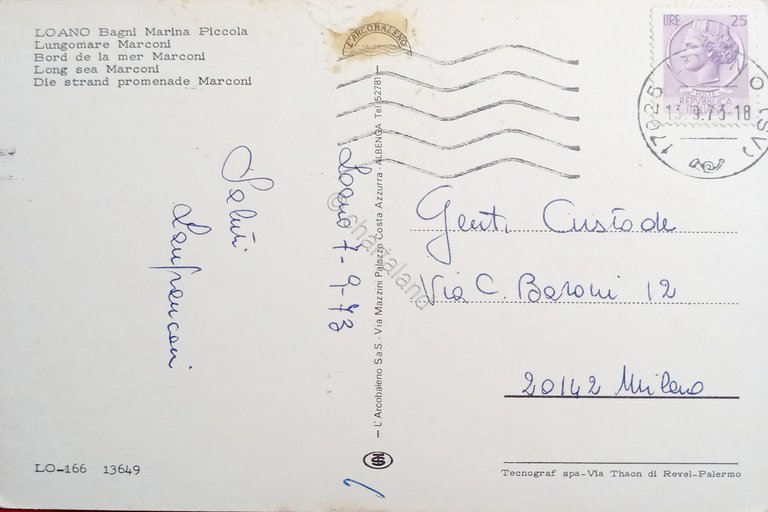 LOANO Bagni Marina Piccola
Lungomare Marconi
Bord de la mer Marconi
Long sea Marconi
Die strand promenade Marconi
L'ARCOBALENO
LIRE 25
POSTE
REPVBBLICA
ITALIANA
17025 LOANO (SV)
13.9.73-18
Loano 7-9-73
Saluti
Lanfranconi
Gent. Custode
Via C. Baroni 12
20142 Milano
— L'Arcobaleno S.a.S. - Via Mazzini Palazzo Costa Azzurra - ALBENGA Tel. 52781 —
© chartaland
LO-166 13649
Tecnograf spa-Via Thaon di Revel-Palermo